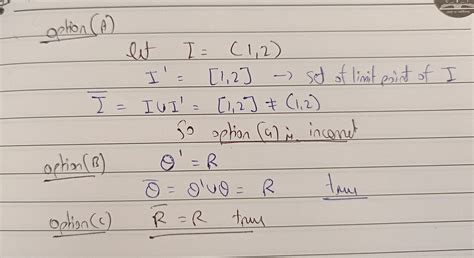 option(A)
let I = (1,2)
I' = [1,2] → set of limit point of I
Ī = I∪I' = [1,2] ≠ (1,2)
So option (a) is incorrect
option(B) Q' = R
Q̄ = Q'∪Q = R true
option(C) R̄ = R true